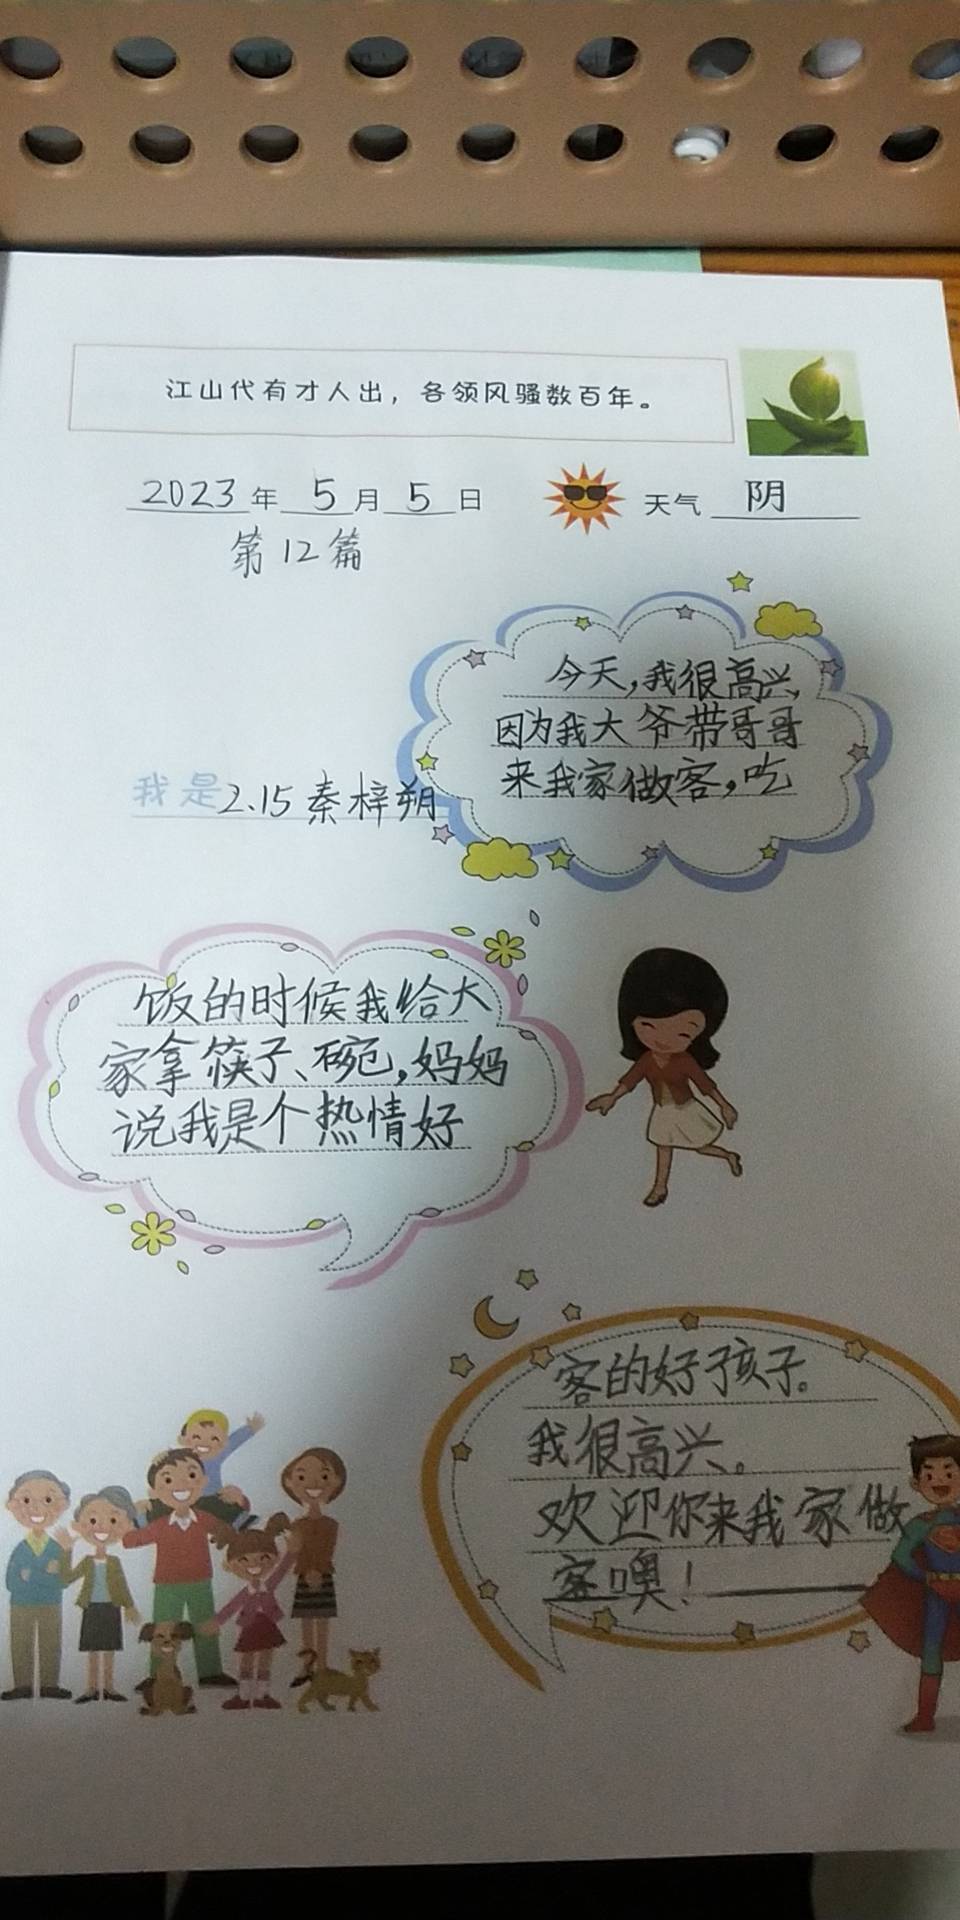 江山代有才人出，各领风骚数百年。
2023年 5月5日 天气 阴
第12篇
今天，我很高兴，
因为我大爷带哥哥
来我家做客，吃
我是2.15秦梓朔
饭的时候我给大
家拿筷子、碗，妈妈
说我是个热情好
客的好孩子。
我很高兴。
欢迎你来我家做
客噢！